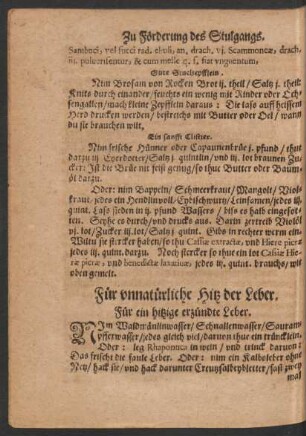 Zu Förderung des Stulgangs.
Sambuci, vel succi rad. ebuli, an. drach. vj. Scammoneæ, drach.
iij. pulverisentur, & cum melle q. s. fiat vnguentum.
Gute Stuelzepfflein.
Nim Brosam von Rocken Brot ij. theil / Saltz j. theil:
Knits durch einander / feuchts ein wenig mit Rinder oder Och-
sengallen / mach kleine Zepfflein daraus: Die lass auff heissem
Herd drucken werden / bestreichs mit Butter oder Oel / wann
du sie brauchen wilt.
Ein sanfft Clistier.
Nim frische Hüner oder Capaunenbrüe j. pfund / thue
darzu ij. Eyerdotter / Saltz j. quintlin / und iij. lot braunen Zu-
cker: Ist die Brüe nit feist genug / so thue Butter oder Baum-
öl darzu.
Oder: nim Pappeln / Schmeerkraut / Mangolt / Viol-
kraut, jedes ein Hendlinvoll / Eybischwurtz / Leinsamen / jedes iij.
quint. Lass sieden in ij. pfund Wassers / biss es halb eingesot-
ten. Seyhe es durch / und drucks aus. Darin zertreib Violöl
vj. lot / Zucker iij. lot / Saltz j. quint. Gibs in rechter werm ein.
Wiltu sie stercker haben / so thu Cassiæ extractæ, und Hiere picræ
jedes iij. quint. darzu. Noch stercker: So thue ein lot Cassiæ Hie-
ræ picræ, und benedictæ laxativæ, jedes iij. quint. brauchs / wie
oben gemelt.
Für vnnatürliche Hitz der Leber.
Für ein hitzige erzündte Leber.
NIm Waldwänlinwasser / Schnallenwasser / Sauram-
pfferwasser / jedes gleich viel / darvon thue ein träncklein.
Oder: leg Rhapontica in wein / und trinck darvon:
Das frischt die faule Leber. Oder: nim ein Kalbsleber ohne
Netz / hack sie / und hack darunter Creutzsalbeybletter / fast zwey
mal